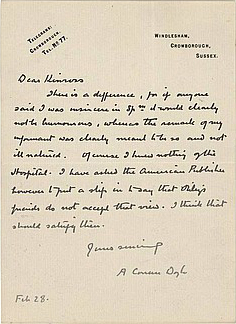 TELEGRAMS:
CROWBOROUGH.
TEL. No 77.
WINDLESHAM,
CROWBOROUGH,
SUSSEX.
Dear Kinross
There is a difference, for if anyone
said I was insincere in it would clearly
not be humorous, whereas the remark of my
informant was clearly meant to be so and not
ill natured. Of course I knew nothing of the
Hospital. I have asked the American Publisher
however to put a slip in to say that
friends do not accept that view. I think that
should satisfy them.
Yours sincerely
A Conan Doyle
Feb 28.